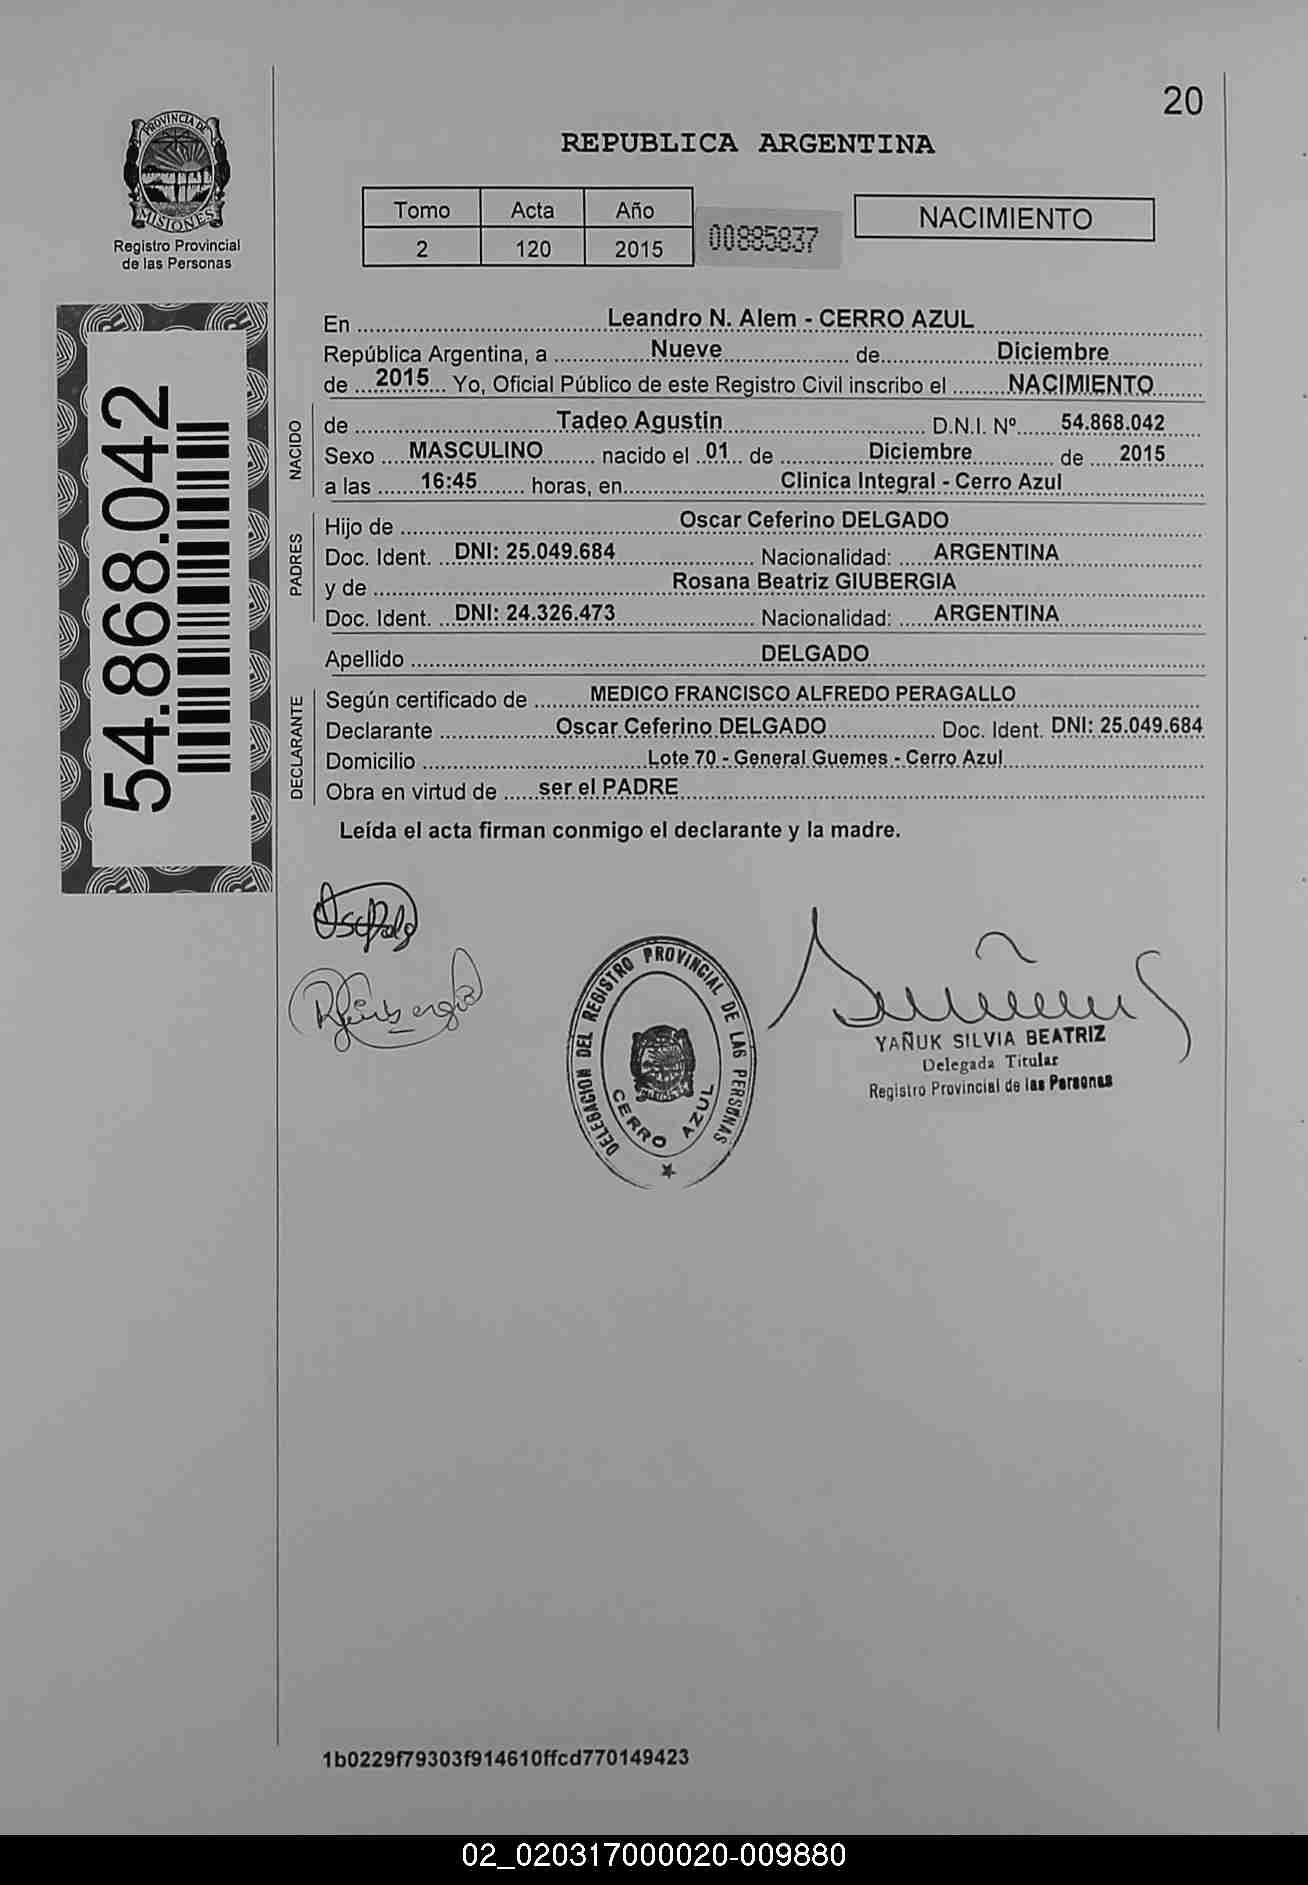 20
PROVINCIA DE
MISIONES
Registro Provincial
de las Personas
REPUBLICA ARGENTINA
Tomo Acta Año
2 120 2015
00885837
NACIMIENTO
54.868.042
En Leandro N. Alem - CERRO AZUL
República Argentina, a Nueve de Diciembre
de 2015 Yo, Oficial Público de este Registro Civil inscribo el NACIMIENTO
NACIDO
de Tadeo Agustin D.N.I. Nº 54.868.042
Sexo MASCULINO nacido el 01 de Diciembre de 2015
a las 16:45 horas, en Clinica Integral - Cerro Azul
PADRES
Hijo de Oscar Ceferino DELGADO
Doc. Ident. DNI: 25.049.684 Nacionalidad: ARGENTINA
y de Rosana Beatriz GIUBERGIA
Doc. Ident. DNI: 24.326.473 Nacionalidad: ARGENTINA
Apellido DELGADO
DECLARANTE
Según certificado de MEDICO FRANCISCO ALFREDO PERAGALLO
Declarante Oscar Ceferino DELGADO Doc. Ident. DNI: 25.049.684
Domicilio Lote 70 - General Guemes - Cerro Azul
Obra en virtud de ser el PADRE
Leída el acta firman conmigo el declarante y la madre.
DELEGACION DEL REGISTRO PROVINCIAL DE LAS PERSONAS
CERRO AZUL
YAÑUK SILVIA BEATRIZ
Delegada Titular
Registro Provincial de las Personas
1b0229f79303f914610ffcd770149423
02_020317000020-009880